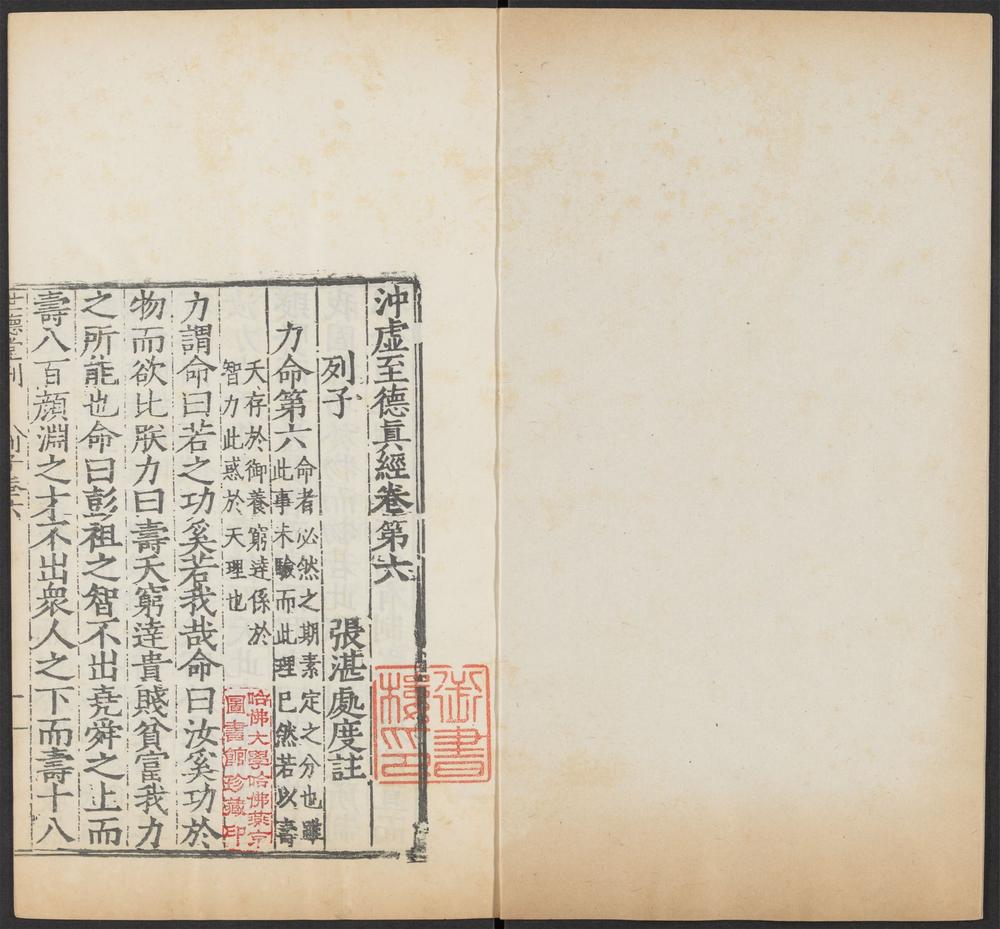 沖虛至德眞經卷第六
列子　張湛處度註
力命第六
命者必然之期素定之分也雖
此事未驗而此理已然若以壽
夭存於御養窮達係於
智力此惑於天理也
力謂命曰若之功奚若我哉命曰汝奚功於
物而欲比朕力曰壽夭窮達貴賤貧富我力
之所能也命曰彭祖之智不出堯舜之上而
壽八百顏淵之才不出衆人之下而壽十八
世德堂刊　列子卷六　一
哈佛大學哈佛燕京
圖書館珍藏印